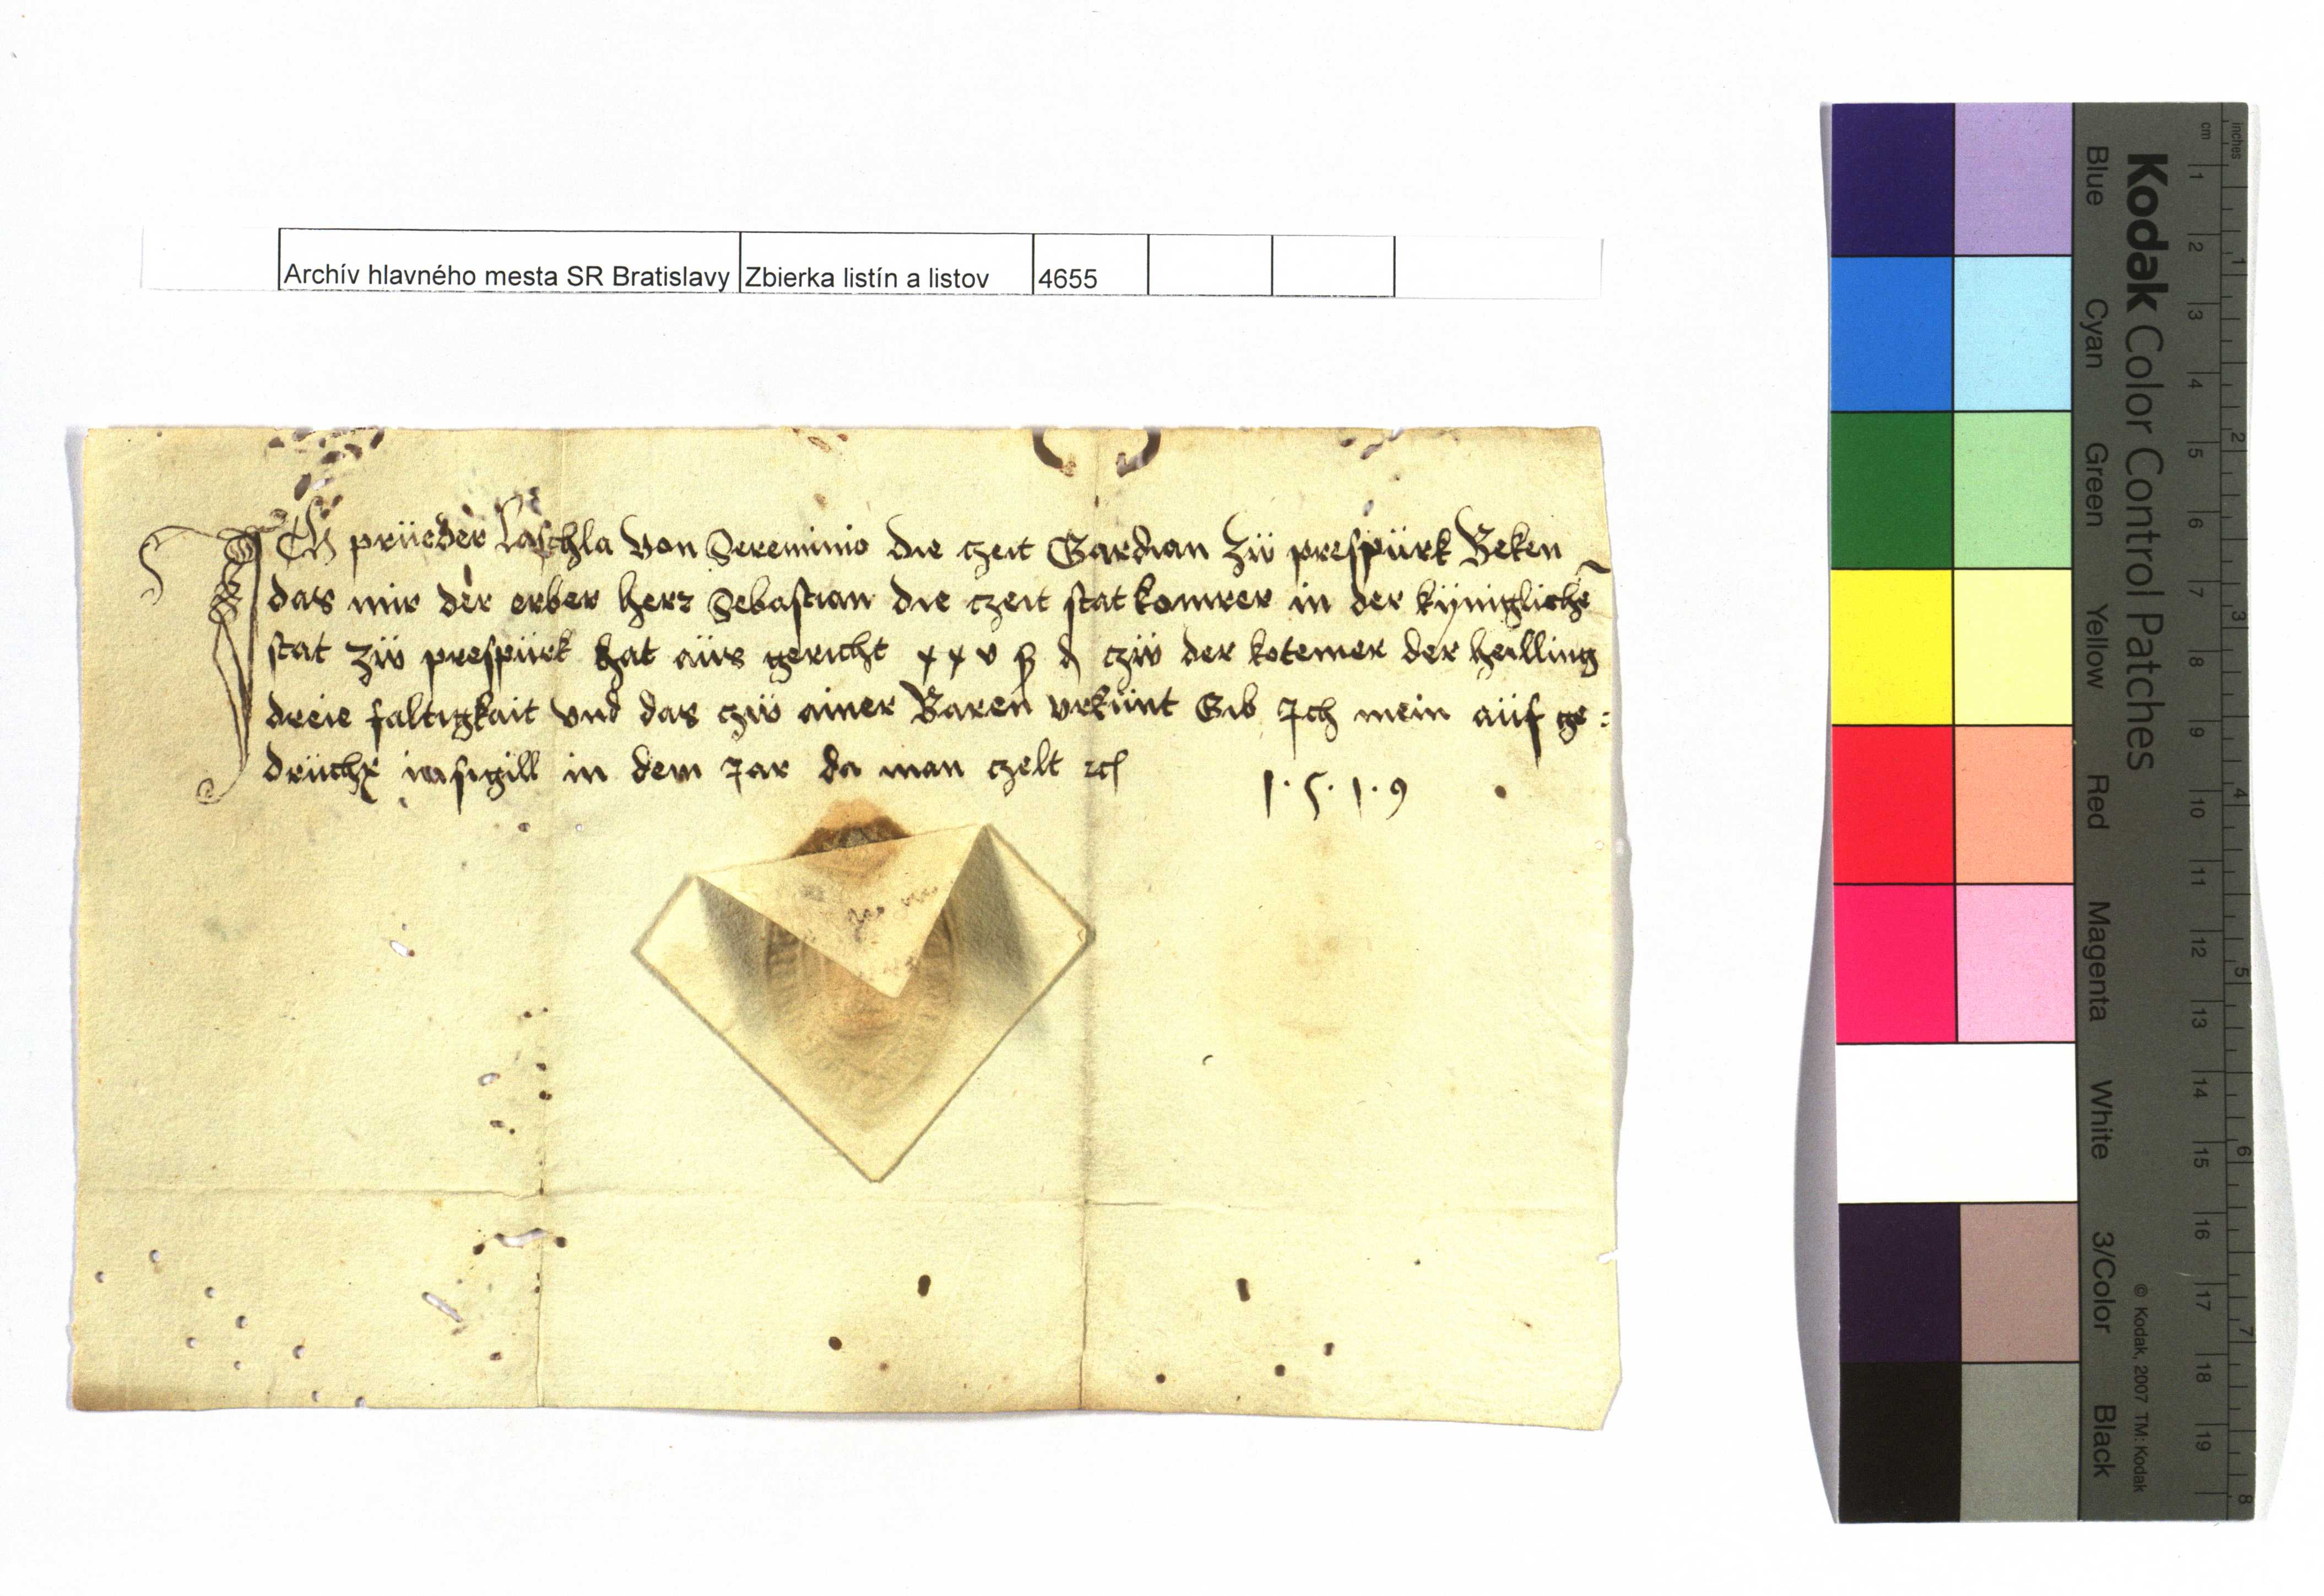 Archív hlavného mesta SR Bratislavy Zbierka listín a listov 4655
ICh prüeder Laschla von Sereminio die czeit Gardian zü prespürk Beken
das mir der erber herr Sebastian die czeit stat komrer in der kÿnigliche
stat zü prespürk hat aüs gericht xxv d czü der kotemer der heilling
dreie faltigkait vnd das czü ainer Baren vrkünt Gib Ich mein aüf ge:
drücht insigill in dem Jar da man czelt
1·5·1·9
Kodak Color Control Patches
Blue Cyan Green Yellow Red Magenta White 3/Color Black
© Kodak, 2007 TM: Kodak
inches 1 2 3 4 5 6 7 8
cm 1 2 3 4 5 6 7 8 9 10 11 12 13 14 15 16 17 18 19